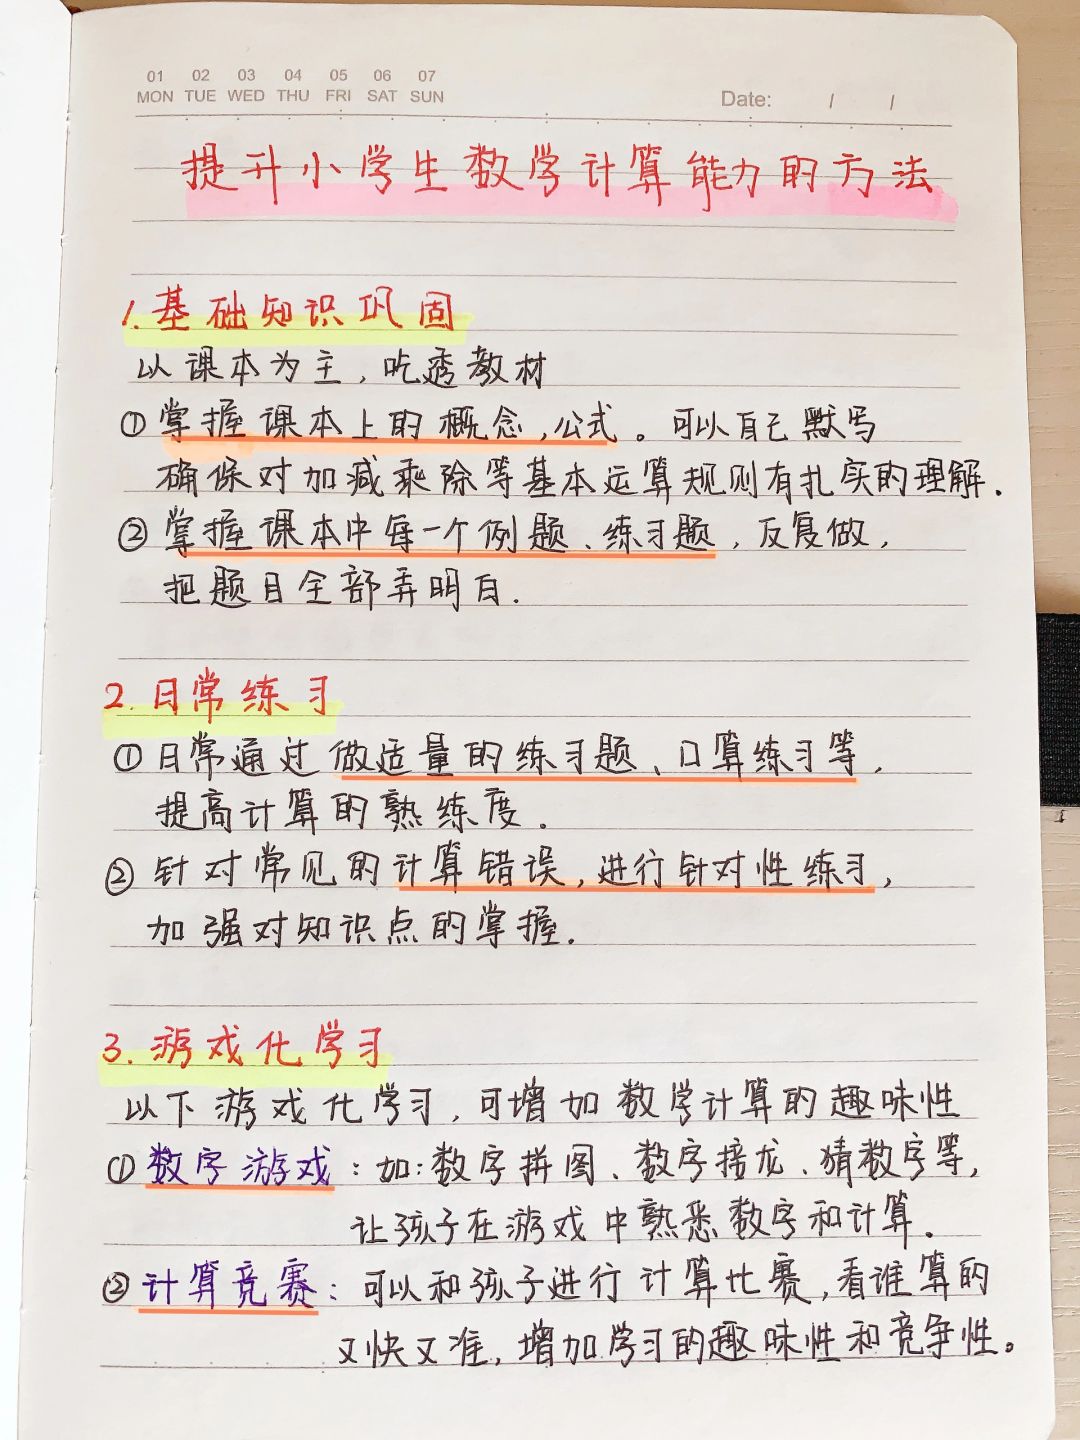 01 02 03 04 05 06 07
MON TUE WED THU FRI SAT SUN
Date: / /
提升小学生数学计算能力的方法
1.基础知识巩固
以课本为主,吃透教材
①掌握课本上的概念,公式。可以自己默写
确保对加减乘除等基本运算规则有扎实的理解.
②掌握课本中每一个例题、练习题,反复做,
把题目全部弄明白.
2.日常练习
①日常通过做适量的练习题、口算练习等,
提高计算的熟练度.
②针对常见的计算错误,进行针对性练习,
加强对知识点的掌握.
3.游戏化学习
以下游戏化学习,可增加数学计算的趣味性
①数字游戏:如:数字拼图、数字接龙、猜数字等,
让孩子在游戏中熟悉数字和计算.
②计算竞赛:可以和孩子进行计算比赛,看谁算的
又快又准,增加学习的趣味性和竞争性。